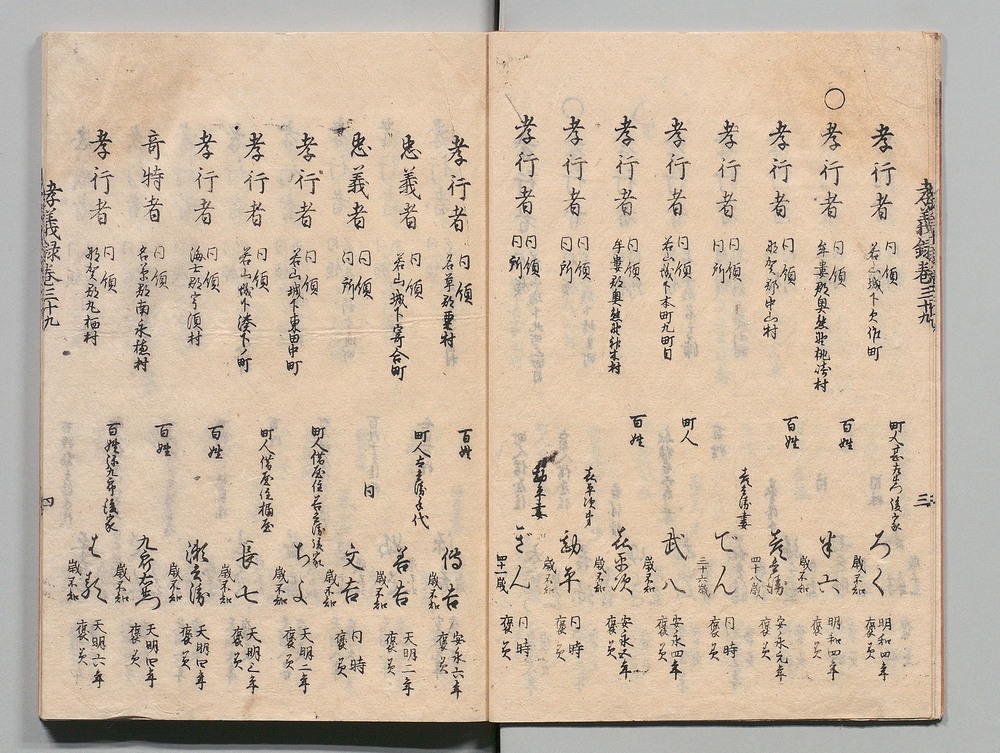 孝義録巻三十九 三
孝行者 同領 若山城下久作町 町人甚左衛門後家 ろく 歳不知 明和四年 褒美
○ 孝行者 同領 牟婁郡奥熊野桃崎村 百姓 半六 歳不知 明和四年 褒美
孝行者 同領 那賀郡中山村 百姓 彦兵衛 四十八歳 安永元年 褒美
孝行者 同領 同所 彦兵衛妻 でん 三十六歳 同時 褒美
孝行者 同領 若山城下本町九町目 町人 武八 歳不知 安永四年 褒美
孝行者 同領 牟婁郡奥熊野神木村 百姓 喜平次 歳不知 安永五年 褒美
孝行者 同領 同所 喜平次弟 勘平 歳不知 同時 褒美
孝行者 同領 同所 勘平妻 ぎん 四十一歳 同時 褒美
孝行者 同領 名草郡粟村 百姓 傳吉 歳不知 安永六年 褒美
忠義者 同領 若山城下寄合町 町人太兵衛手代 若吉 歳不知 天明二年 褒美
忠義者 同領 同所 同 文吉 歳不知 同時 褒美
孝行者 同領 若山城下東田中町 町人借屋住若兵衛後家 ちよ 歳不知 天明二年 褒美
孝行者 同領 若山城下湊下ノ町 町人借屋住桶屋 長七 歳不知 天明三年 褒美
孝行者 同領 海士郡 須村 百姓 瀬兵衛 歳不知 天明四年 褒美
奇特者 同領 名草郡南永穂村 百姓 九郎右衛門 歳不知 天明四年 褒美
孝行者 同領 那賀郡九栖村 百姓弥九郎後家 歳不知 天明六年 褒美
孝義録巻三十九 四